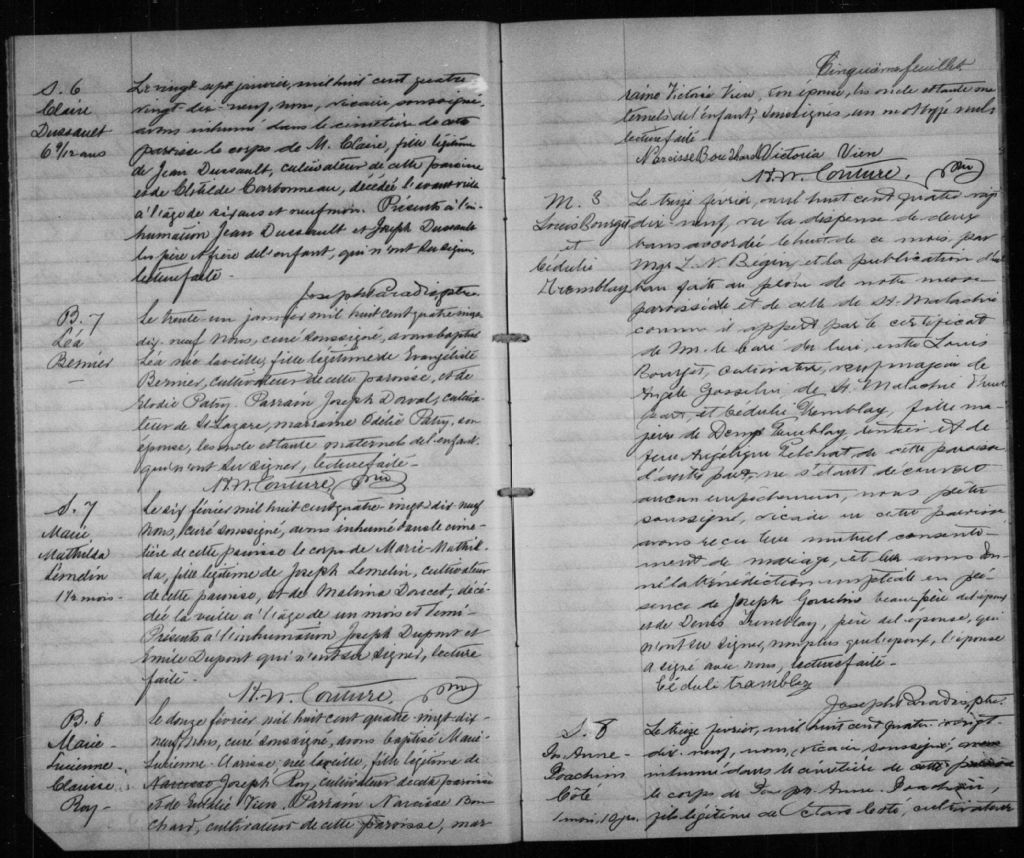 S. 6
Claire
Dussault
6 9/12 ans
Le vingt sept janvier, mil huit cent quatre
vingt dix-neuf, nous, vicaire soussigné,
avons inhumé dans le cimetière de cette
paroisse le corps de M. Claire, fille légitime
de Jean Dussault, cultivateur de cette paroisse
et de Clotilde Carbonneau, décédée l'avant veille
à l'âge de six ans et neuf mois. Présents à l'in-
humation Jean Dussault et Joseph Dussault
les père et frère de l'enfant, qui n'ont su signer,
lecture faite.
Joseph Paradis, ptre
B. 7
Léa
Bernier
Le trente-un janvier mil huit cent quatre vingt
dix-neuf nous, curé soussigné, avons baptisé
Léa née la veille, fille légitime de Evangéliste
Bernier, cultivateur de cette paroisse, et de
Elodie Patry. Parrain Joseph Dorval, cultiva-
teur de St Lazare, marraine Odélie Patry, son
épouse, les oncle et tante maternels de l'enfant,
qui n'ont su signer, lecture faite.
N. W. Couture, ptre
S. 7
Marie
Mathilda
Lemelin
1 1/2 mois
Le six février mil huit cent quatre-vingt dix neuf
nous, curé soussigné, avons inhumé dans le cime-
tière de cette paroisse le corps de Marie-Mathil-
da, fille légitime de Joseph Lemelin, cultivateur
de cette paroisse, et de Malvina Doucet, décé-
dée la veille à l'âge de un mois et demi.
Présents à l'inhumation Joseph Dupont et
Emile Dupont qui n'ont su signer, lecture
faite.
N. W. Couture, ptre
B. 8
Marie-
Lucienne-
Clarisse
Roy
Le douze février mil huit cent quatre-vingt dix-
neuf, nous, curé soussigné, avons baptisé Marie-
Lucienne-Clarisse, née la veille, fille légitime de
Narcisse Joseph Roy, cultivateur de cette paroisse
et de Vien. Parrain Narcisse Bou-
chard, cultivateur de cette paroisse, mar-
Cinquième feuillet
raine Victoria Vien, son épouse, les oncle et tante ma-
ternels de l'enfant, soussignés, un mot rayé nul
lecture faite
Narcisse Bouchard Victoria Vien
N. W. Couture, ptre
M. 3
Louis Bourget
et
Cédulie
Tremblay
Le treize février, mil huit cent quatre vingt
dix neuf, vu la dispense de deux
bans accordée le huit de ce mois par
Mgr L. N. Bégin, et la publication d'un
ban faite au prône de notre messe
paroissiale et de celle de St Malachie
comme il appert par le certificat
de Mr. le curé du lieu, entre Louis
Bourget, cultivateur, veuf majeur de
Angèle Gosselin de St. Malachie d'une
part, et Cédulie Tremblay, fille ma-
jeure de Denis Tremblay, rentier et de
feue Angélique Pelchat de cette paroisse
d'autre part, ne s'étant découvert
aucun empêchement, nous prêtre
soussigné, vicaire en cette paroisse
avons reçu leur mutuel consente-
ment de mariage, et leur avons don-
né la bénédiction nuptiale en pré-
sence de Joseph Gosselin beau-père de l'époux
et de Denis Tremblay, père de l'épouse, qui
n'ont su signer, non plus que l'époux, l'épouse
a signé avec nous, lecture faite.
Cédulie tramblay
Joseph Paradis, ptre.
S. 8
Jos. Anne-
Joachim
Côté
1 mois, 19 jrs.
Le treize février, mil huit cent quatre-vingt-
dix-neuf, nous, vicaire soussigné, avons
inhumé dans le cimetière de cette paroisse
le corps de Joseph Anne Joachim,
fils légitime de Côté, cultivateur